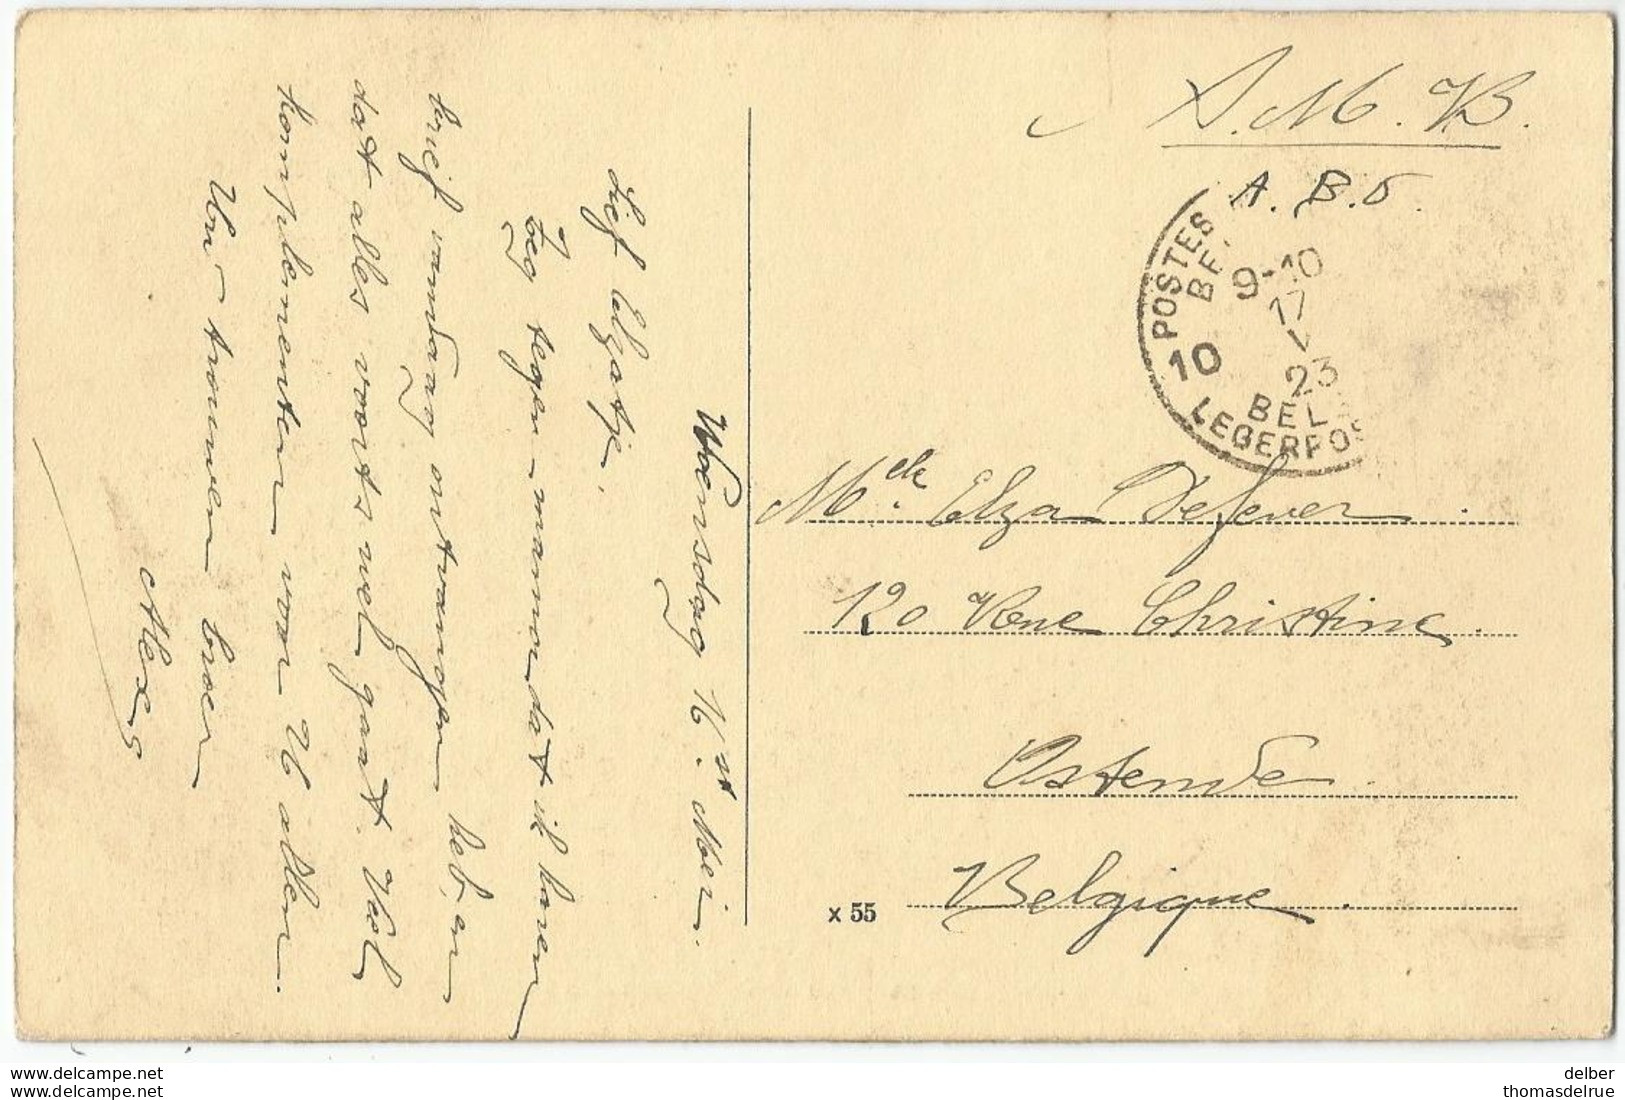 Woensdag 16st Mei.
Lief Elzatje.
Zeg tegen mama dat ik haren
brief vandaag ontvangen heb, en
dat alles voorts wel gaat. Veel
komplementen voor U allen.
Uw trouwen broer
Alex
S.M.B.
A.B.O.
POSTES
BE
9-10
17
V
23
10
BEL
LEGERPOS
Melle Elza Defever
120 Rue Christine
Ostende
Belgique
x 55
delcampe.net
delcampe.net
delber
thomasdelrue